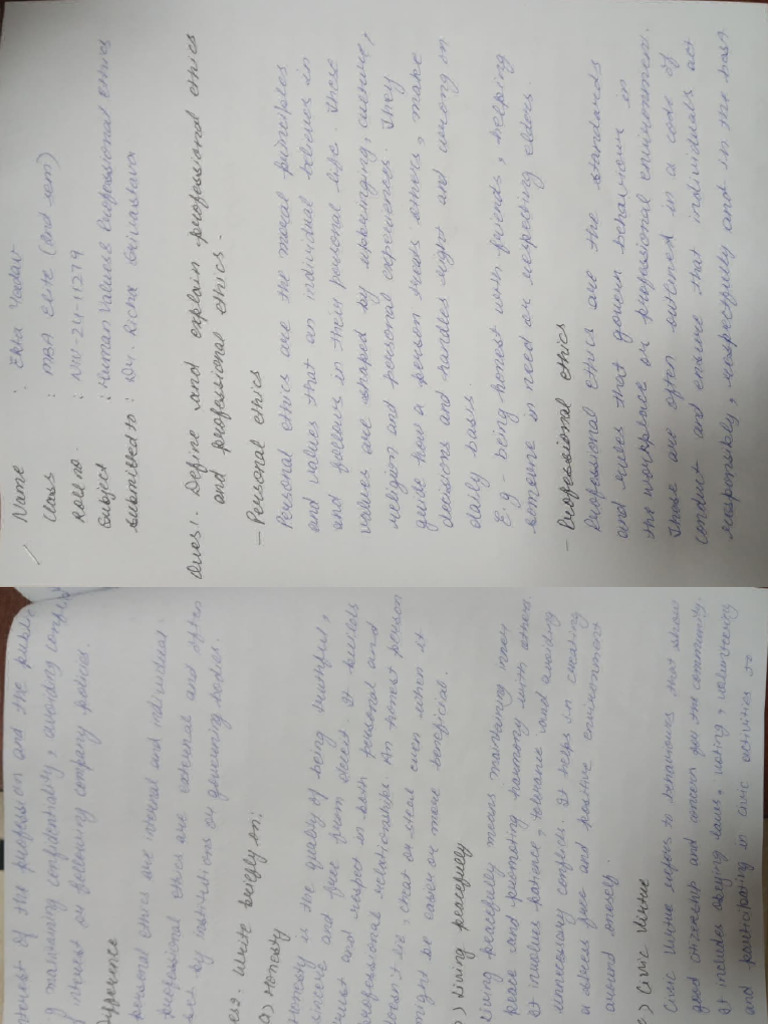 Name : Ekta Yadav
Class : MBA Elite (2nd sem)
Roll no. : NW-24-11279
Subject : Human Values & Professional Ethics
Submitted to : Dr. Richa Srivastava
Ques1. Define and explain professional ethics
and professional ethics.
- Personal ethics
Personal ethics are the moral principles
and values that an individual believes in
and follows in their personal life. These
values are shaped by upbringing, culture,
religion and personal experiences. They
guide how a person treats others, make
decisions and handles right and wrong on
daily basis.
E.g - being honest with friends, helping
someone in need or respecting elders.
- Professional ethics
Professional ethics are the standards
and rules that govern behaviour in
the workplace or professional environment.
These are often outlined in a code of
conduct and ensure that individuals act
responsibly, respectfully and in the best
interest of the profession and the public
maintaining confidentiality, avoiding conflict
interest or following company policies.
Difference
personal ethics are internal and individual.
professional ethics are external and often
set by institutions or governing bodies.
es2. Write briefly on:
a) Honesty
Honesty is the quality of being truthful,
sincere and free from deceit. It builds
trust and respect in both personal and
professional relationships. An honest person
doesn't lie, cheat or steal even when it
might be easier or more beneficial.
) Living peacefully
Living peacefully means maintaining inner
peace and promoting harmony with others.
It involves patience, tolerance and avoiding
unnecessary conflicts. It helps in creating
a stress free and positive environment
around oneself.
) Civic Virtue
Civic virtue refers to behaviours that show
good citizenship and concern for the community.
It includes obeying laws, voting, volunteering
and participating in civic activities to